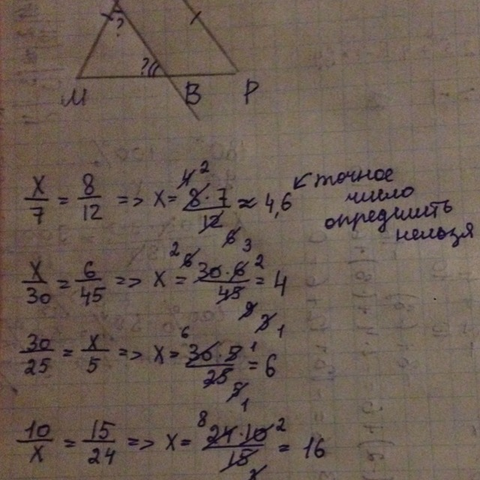 ?
?
М В Р
x/7 = 8/12 => x = 8·7/12 ≈ 4,6 точное
число
определить
нельзя
x/30 = 6/45 => x = 30·6/45 = 4
30/25 = x/5 => x = 30·5/25 = 6
10/x = 15/24 => x = 24·10/15 = 16